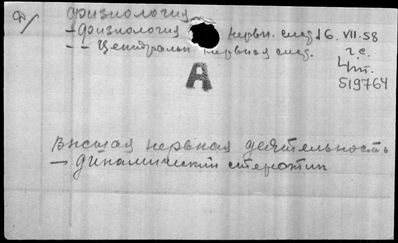 Ф/
Физиология
– Физиология нервн. сист. 16.VII.58
– – Центральн нервная сист. г.с.
4 т.
519764
А
Высшая нервная деятельность
– динамический стереотип